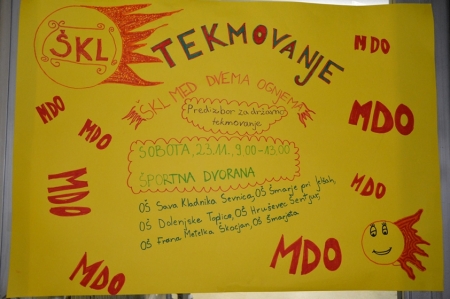 ŠKL
TEKMOVANJE
NDO
ŠKL MED DVEMA OGNJEMA
Predizbor za državno
tekmovanje
MDO
MDO
MDO
SOBOTA, 23.11., 9.00-13.00
ŠPORTNA DVORANA
MDO
MDO
OŠ Sava Kladnika Sevnica, OŠ Šmarje pri Jelšah,
OŠ Dolenjske Toplice, OŠ Hruševec Šentjur,
OŠ Frana Metelka Škocjan, OŠ Šmarjeta
MDO
MDO